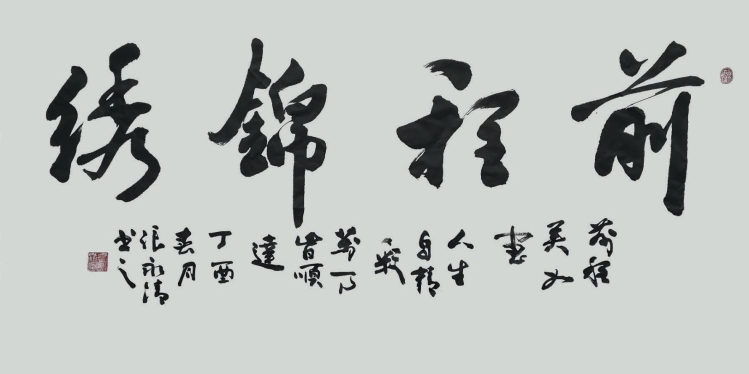 前程錦绣
前程
美如
畫
人生
自精
彩
萬事
皆順
達
丁酉
春月
張永清
书之